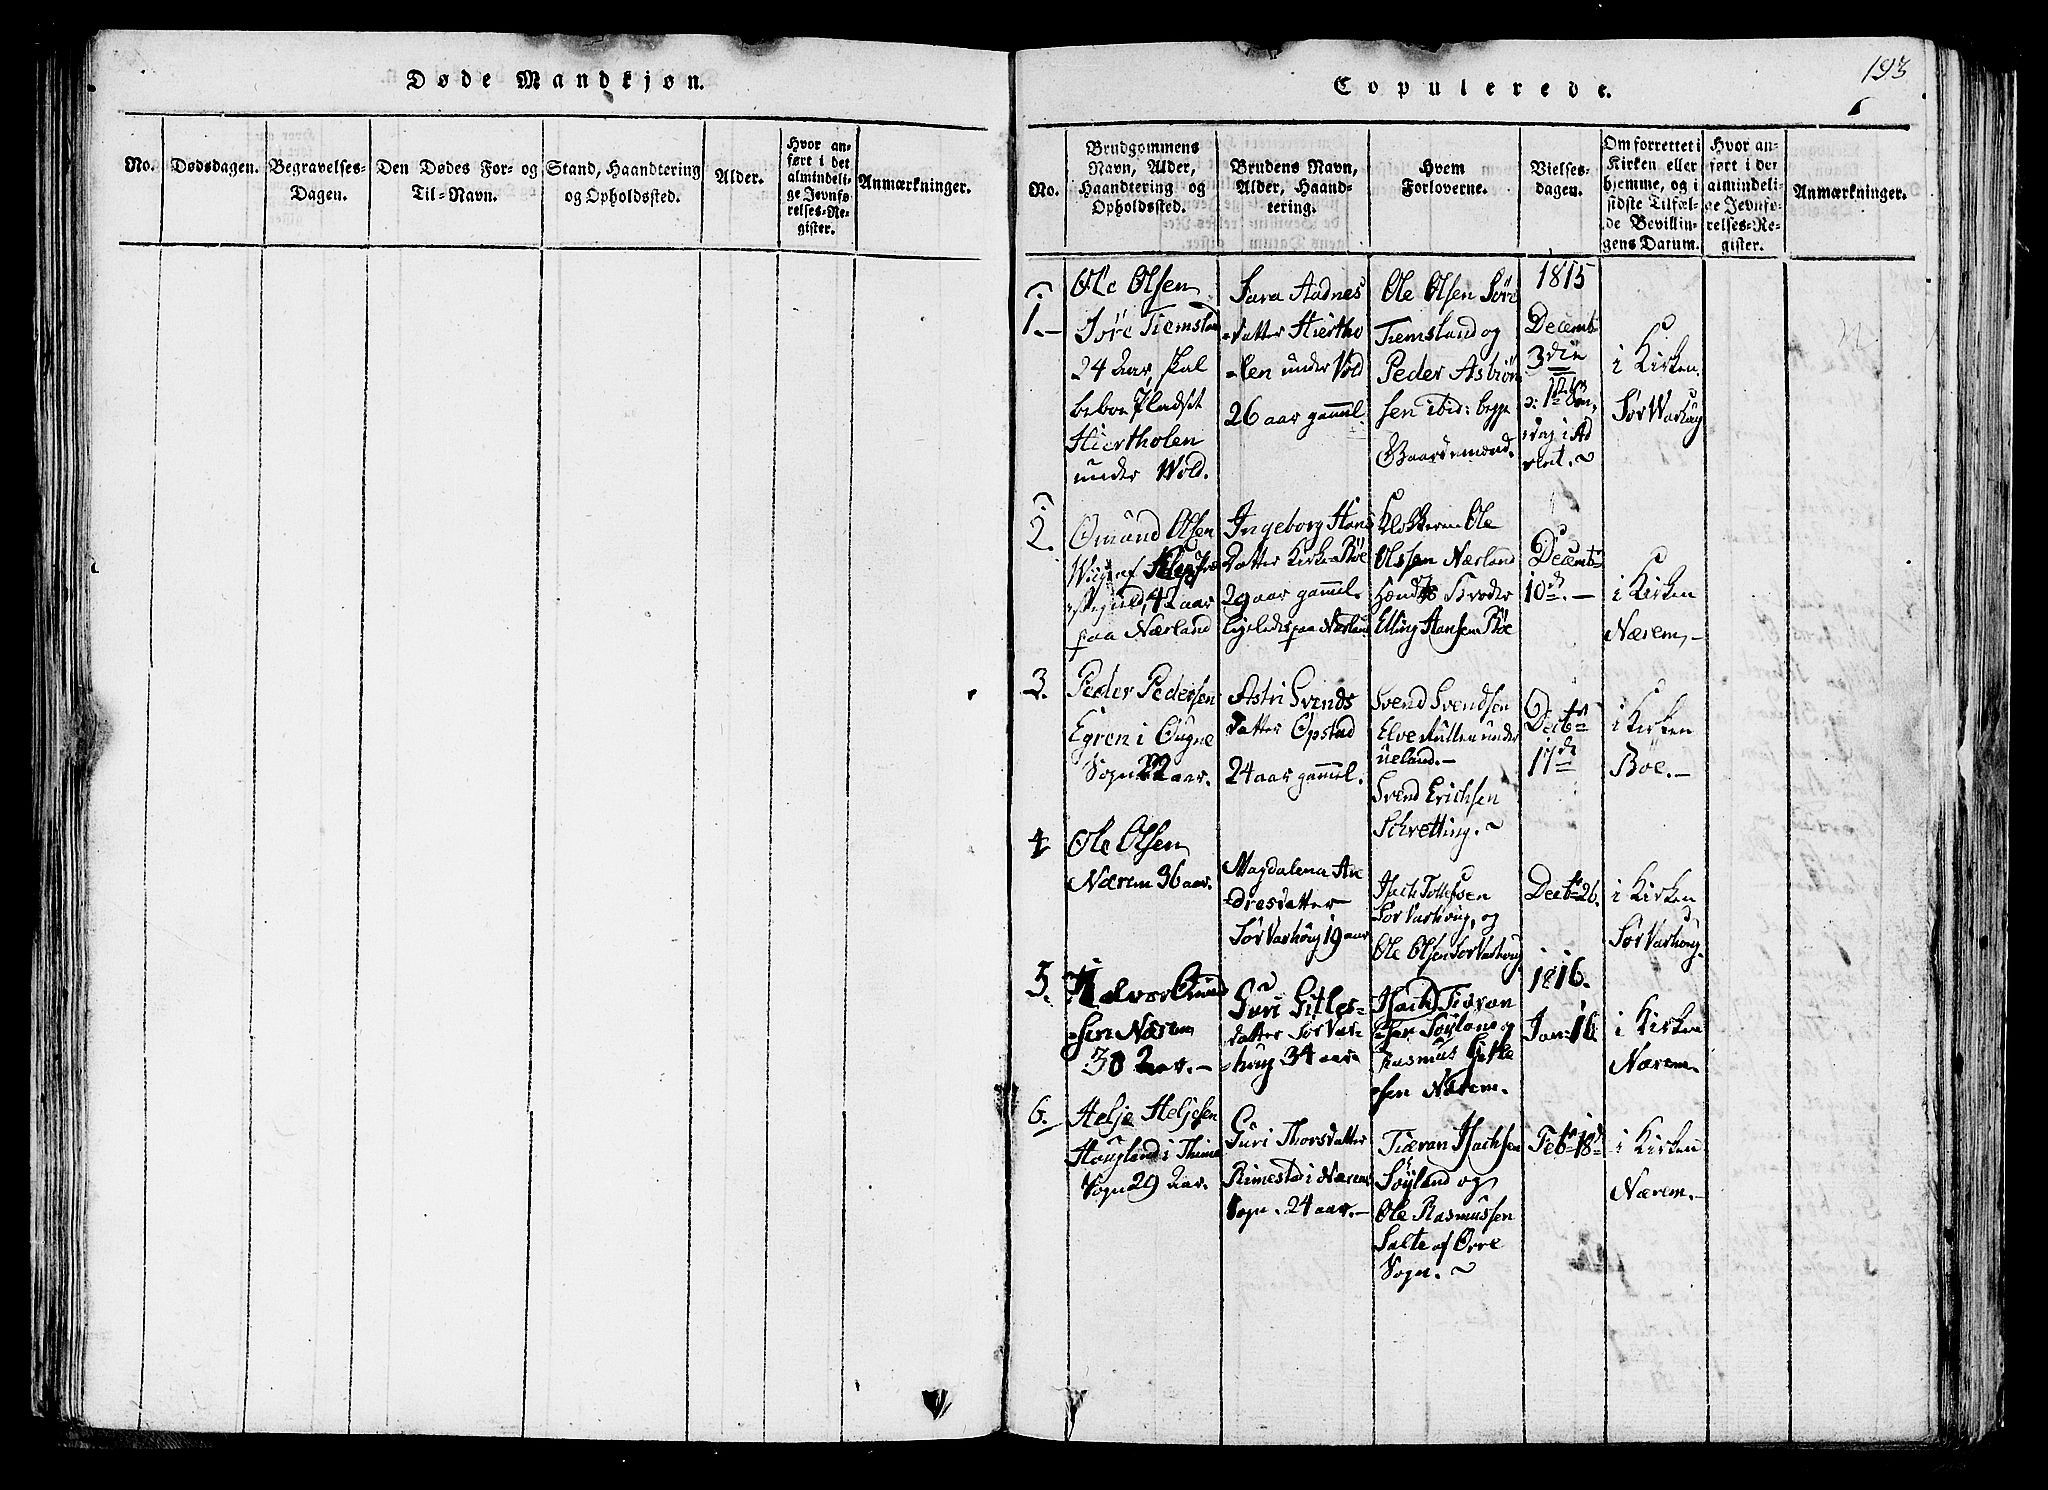 Døde Mandkjøn.
No.
Dødsdagen.
Begravelses-
Dagen.
Den Dødes For- og
Til-Navn.
Stand, Haandtering
og Opholdssted.
Alder.
Hvor an-
ført i det
almindeli-
ge Jevnfø-
relses-Re-
gister.
Anmærkninger.
193
Copulerede.
No.
Brudgommens
Navn, Alder,
Haandtering og
Opholdssted.
Brudens Navn,
Alder, Haand-
tering.
Hvem
Forloverne.
Vielses-
dagen.
Om forrettet i
Kirken eller
hjemme, og i
sidste Tilfæl-
de Bevillin-
gens Datum.
Hvor an-
ført i det
almindeli-
ge Jevnfø-
relses-Re-
gister.
Anmærkninger.
1.
Ole Olsen
Søre Tiemsland
24 Aar, skal
beboe Pladset
Hiertholen
under Wold.
Sara Aadnes
-datter Hiertho
-len under Vold
26 aar gammel
Ole Olsen Søre
Tiemsland og
Peder Asbiøn
sen ibid: begge
Gaardemænd.
1815
Decemb
3die
1ste Søn,
dag i Ad
vent.
i Kirken
Sør Warhoug
2.
Omund Olsen
Wiig af Klep Præ
stegield, 42 aar
paa Nærland
Ingeborg Hans
Datter Kirke Bøe
29 aar gammel
ligeledes paa Nærland
Klokkeren Ole
Olssen Nærland
hendes Broder
Elling Hansen Bøe
Decemb
10de. -
i Kirken
Nærem, -
3.
Peder Pedersen
Egren i Ougne
Sogn 22 aar.
Astri Svends
Datter Opstad
24 aar gammel.
Svend Svendsen
Elvestullen under
ueland. -
Svend Erichsen
Schretting.
Decbr
17de
i Kirken
Bøe. -
4
Ole Olsen
Nærem 36 aar.
Magdalena An
dresdatter
Sør Varhoug 19 aar
Isach Tollefsen
Sør Varhoug, og
Ole Olsen Sør Varhoug
Decbr 26.
i Kirken
Sør Varhoug.
5.
Halvor Omund
-sen Nærem
30 Aar. -
Guri Gitles-
datter Sør Var-
-houg 34 aar
Isach Tiøran
sen Søyland og
Rasmus Gitle
-sen Nærem.
1816.
Jan: 16
i Kirken
Nærem
6.
Helje Heljesen
Houglend i Thime
Sogn 29 Aar.
Guri Thorsdatter
Rimestad i Nærem
Sogn. 24 aar. -
Tiøran Isachsen
Søyland og
Ole Rasmussen
Salte af Orre
Sogn.
Febr 18d
i Kirken
Nærem. -